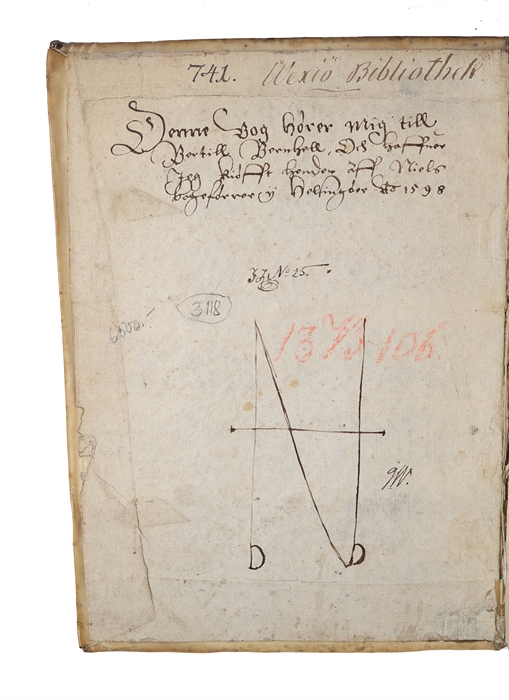 741. Wexiö Bibliothek
Denne Bog hører mig till
Bertill Bernhell, Och haffuer
Jeg kiøfft hender aff Niels
bogeførrer y Helsingøer 1598
No 25.
6500.-
3118
13 106
D D